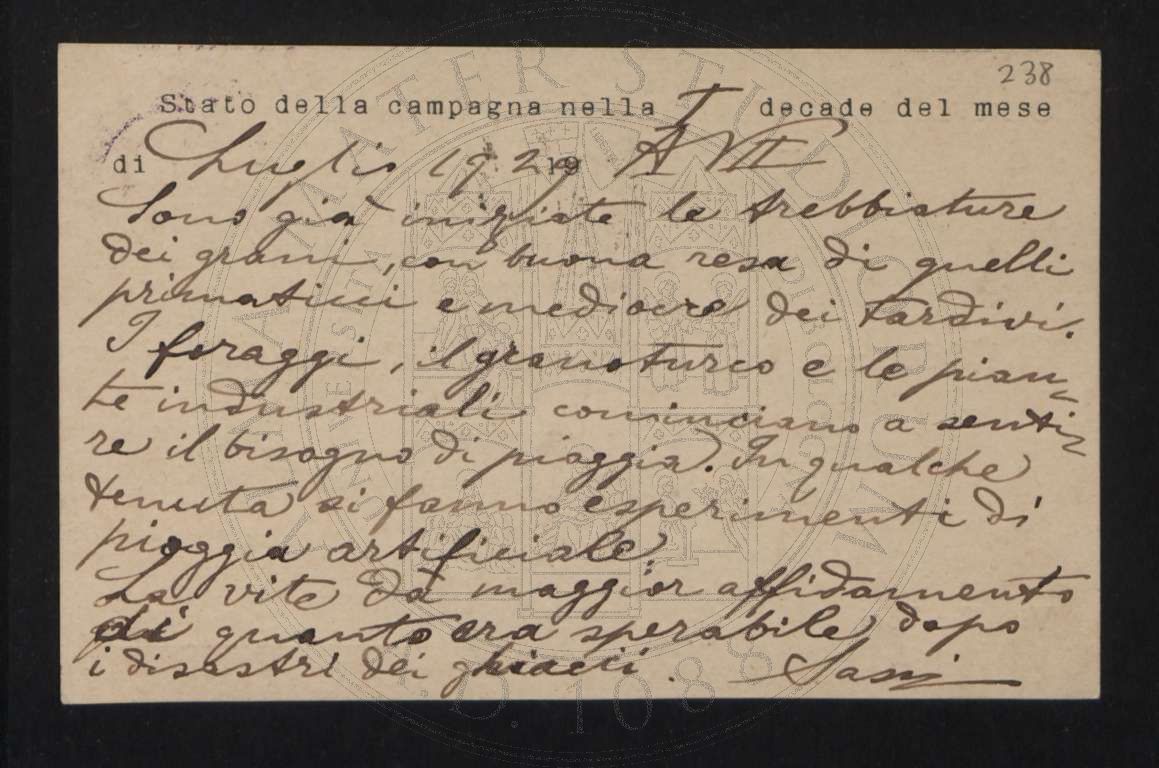 238
Stato della campagna nella I decade del mese
di Luglio 1929 A VII
Sono già iniziate le trebbiature
dei grani, con buona resa di quelli
primaticci e mediocre dei tardivi.
I foraggi, il granoturco e le pian-
te industriali cominciano a senti-
re il bisogno di pioggia. In qualche
tenuta si fanno esperimenti di
pioggia artificiale.
La vite dà maggior affidamento
di quanto era sperabile dopo
i disastri dei ghiacci. Sassi
ALMA MATER STUDIORUM
A.D. 1088